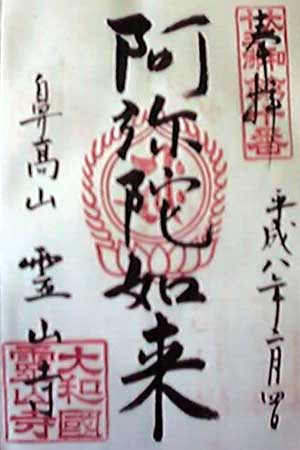 奉拝
平成八年二月四日
阿弥陀如来
鼻高山 霊山寺
大和國
靈山寺